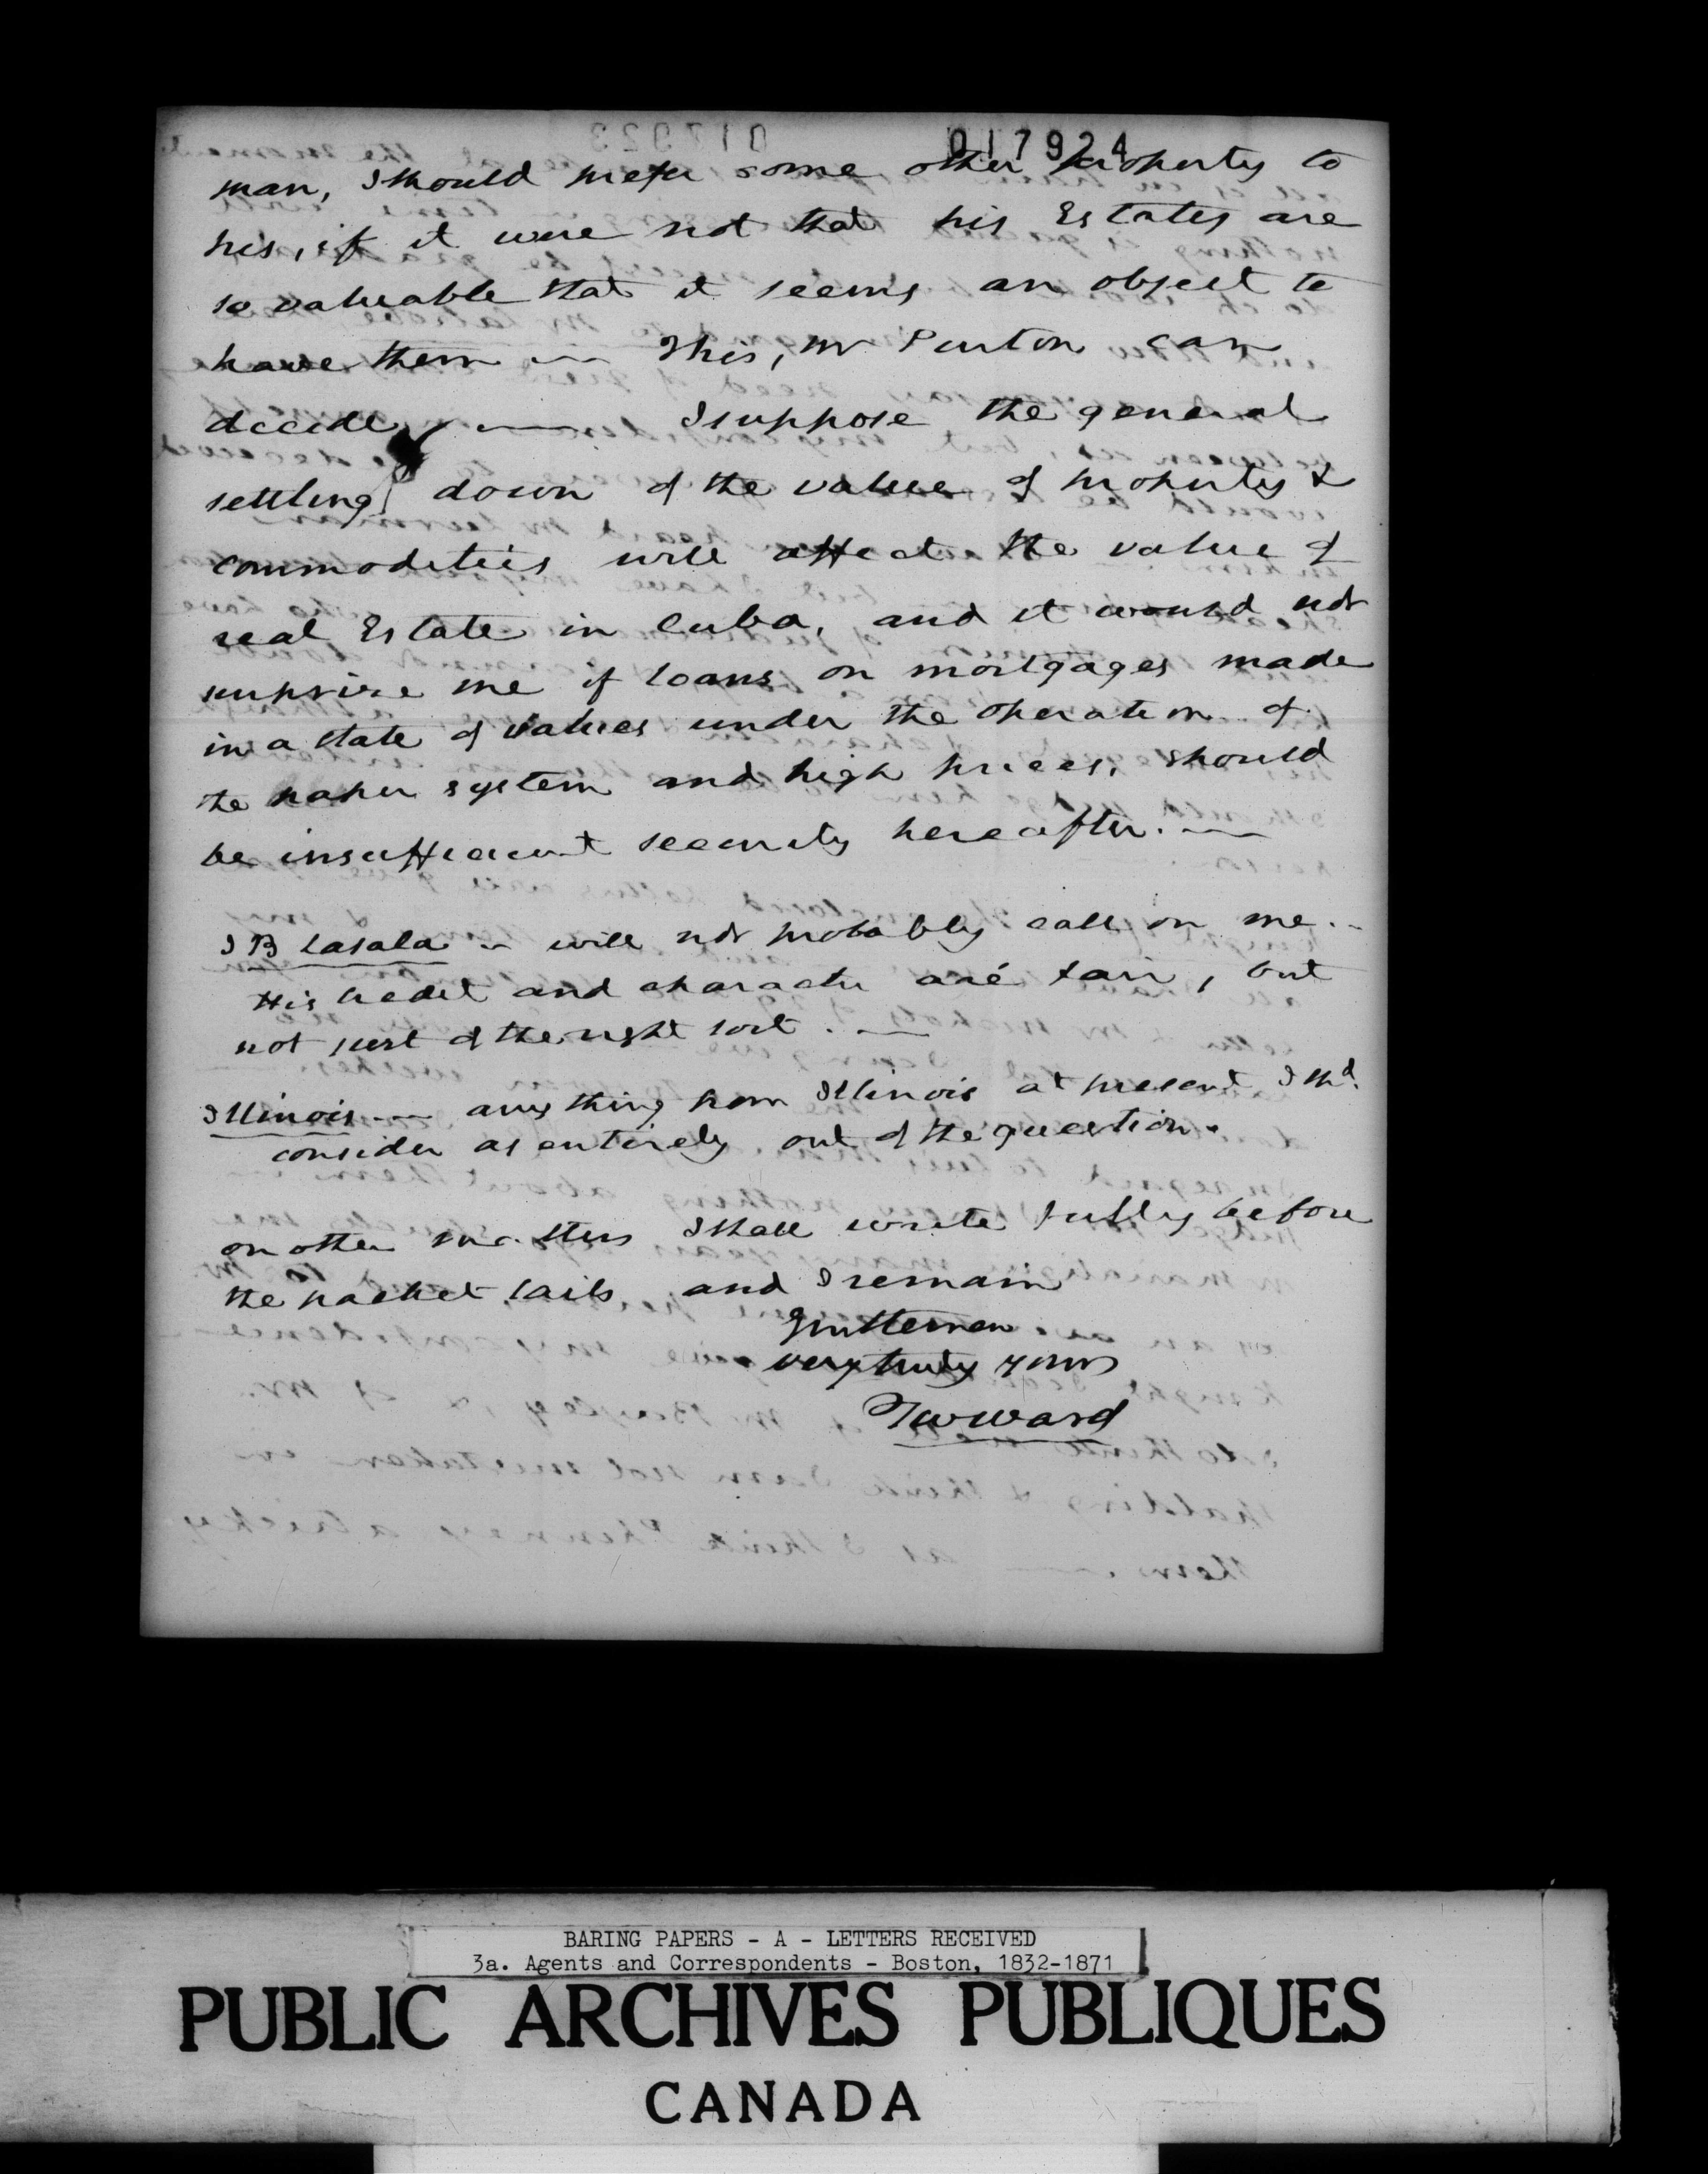 017924
man, I should prefer some other property to
his, if it were not that his Estates are
so valuable that it seems an object to
have them — This, Mr Purton can
decide, — I suppose the general
settling down of the value of property &
commodities will affect the value of
real Estate in Cuba, and it would not
surprise me if loans on mortgages made
in a state of values under the operation of
the paper system and high prices, should
be insufficient security hereafter. —
J B Lasala — will not probably call on me. —
His credit and character are fair, but
not just of the right sort. —
Illinois — any thing from Illinois at present I shd.
consider as entirely out of the question.
on other matters I shall write fully before
the packet sails and I remain
Gentlemen
very truly yours
TWWard
BARING PAPERS - A - LETTERS RECEIVED
3a. Agents and Correspondents - Boston, 1832-1871
PUBLIC ARCHIVES PUBLIQUES
CANADA